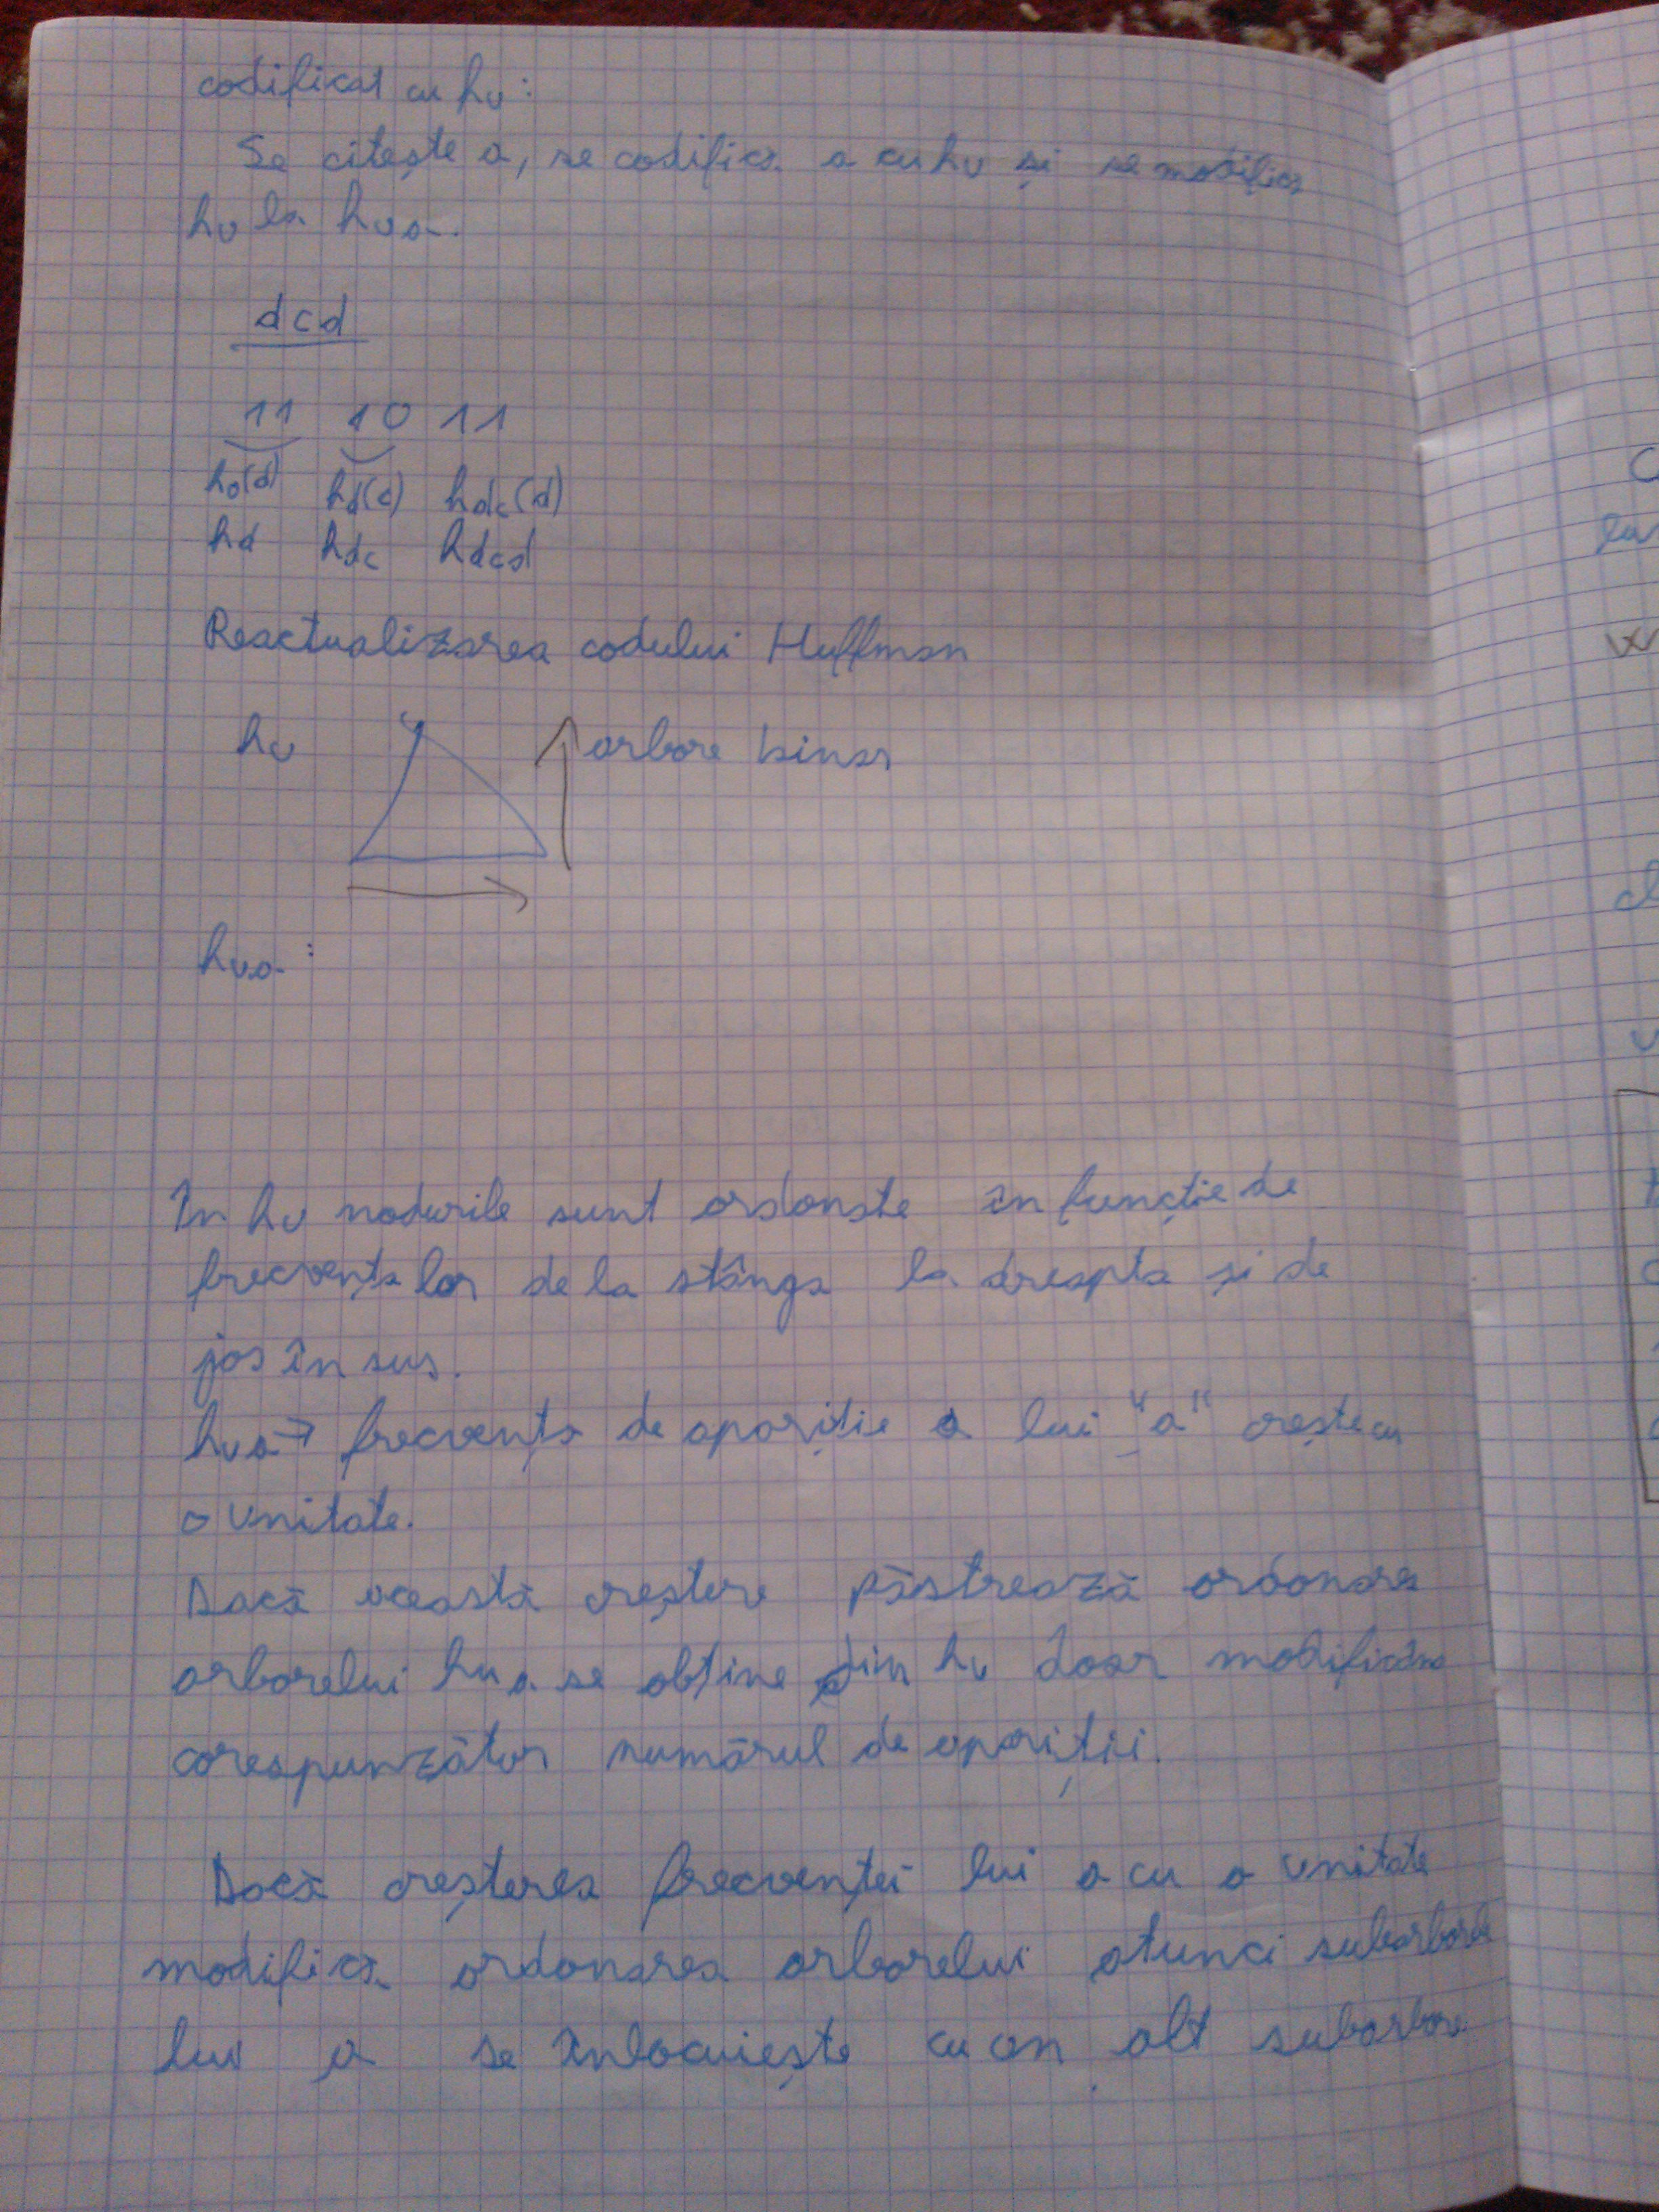 codificat cu hv:
Se citește a, se codifica a cu hv și se modifica
hv la hva.
dcd
11 10 11
h0(d) hd(c) hdc(d)
hd hdc hdcd
Reactualizarea codului Huffman
hv arbore binar
hva:
În hv nodurile sunt ordonate în funcție de
frecvența lor de la stânga la dreapta și de
jos în sus.
hva → frecvența de apariție a lui "a" crește cu
o unitate.
Dacă această creștere păstrează ordonarea
arborelui hva se obține din hv doar modificând
corespunzător numărul de apariții.
Dacă creșterea frecvenței lui a cu o unitate
modifica ordonarea arborelui atunci subarborele
lui a se înlocuiește cu un alt subarbore